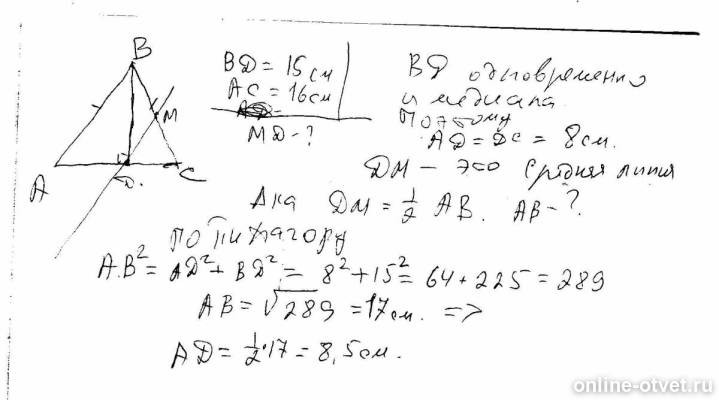 B
M
A
D
C
BD = 15 см
AC = 16 см
MD - ?
BD одновременно
и медиана
поэтому
AD = DC = 8 см.
DM – это средняя линия
Δка DM = 1/2 AB. AB - ?
по Пифагору
AB² = AD² + BD² = 8² + 15² = 64 + 225 = 289
AB = √289 = 17 см. =>
AD = 1/2 · 17 = 8,5 см.
online-otvet.ru